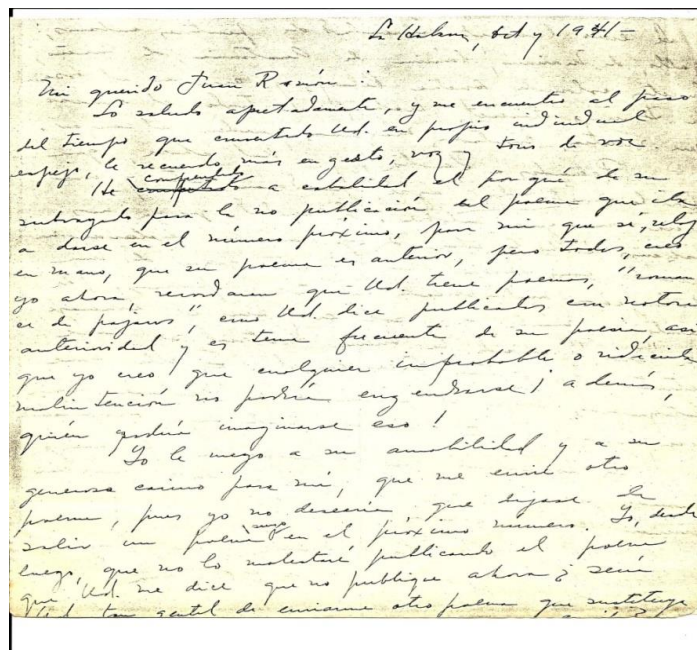 La Habana, oct y 1941-
Mi querido Juan Ramón:
Lo saludo apretadamente, y me encuentro al paso
del tiempo que convertido Ud. en propio individual
espejo, le recuerdo más en gesto, voz y tono de voz
He comprendido a cabalidad el por qué de su
subrayado para la no publicación del poema que iba
a darse en el número próximo, para mí que sé, reloj
en mano, que su poema es anterior, pero todos, creo
yo ahora, recordaran que Ud. tiene poemas, "roman
ce de pájaros", como Ud. dice publicados con notoria
anterioridad y es tema frecuente de su poesía, así
que yo creo que cualquier improbable o ridícula
mala intención no podría engendrarse; además,
quién podría imaginarse eso!
Yo le ruego a su amabilidad y a su
generoso cariño para mí, que me envíe otro
poema, pues yo no desearía que dejase de
salir un poema suyo en el próximo número. Yo, desde
luego, que no lo molestaré publicando el poema
que Ud. me dice que no publique ahora ¿ será
Ud. tan gentil de enviarme otro poema que sustituya